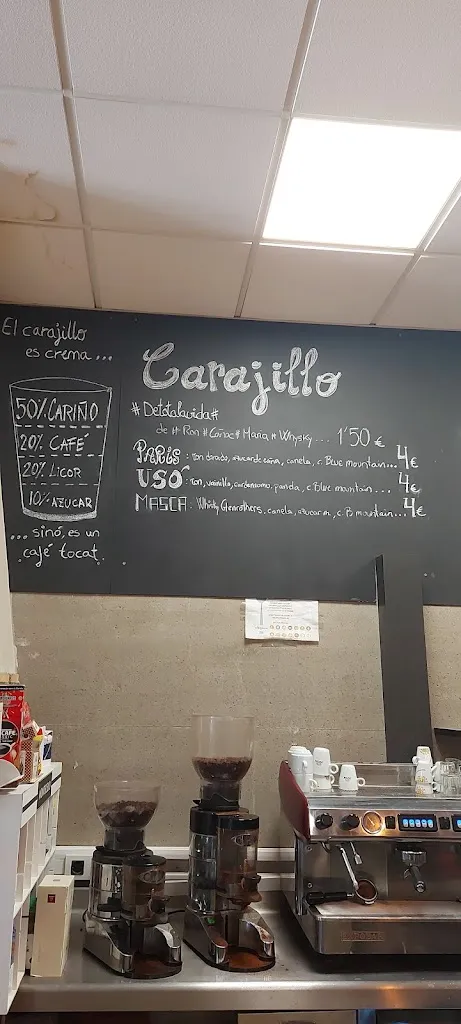 El carajillo
es crema...
50% CARIÑO
20% CAFÉ
20% LICOR
10% AZUCAR
...sinó, es un
café tocat.
Carajillo
#Detotalavida#
de # Ron # Coñac # Maria # Whysky... 1'50 €
PARÍS: ron dorado, azucar de caña, canela, c. Blue mountain... 4€
USÓ: ron, vainilla, cardamomo, panela, c. Blue mountain... 4€
MASCA: Whisky Glenrothers, canela, azucar m, c. B mountain... 4€